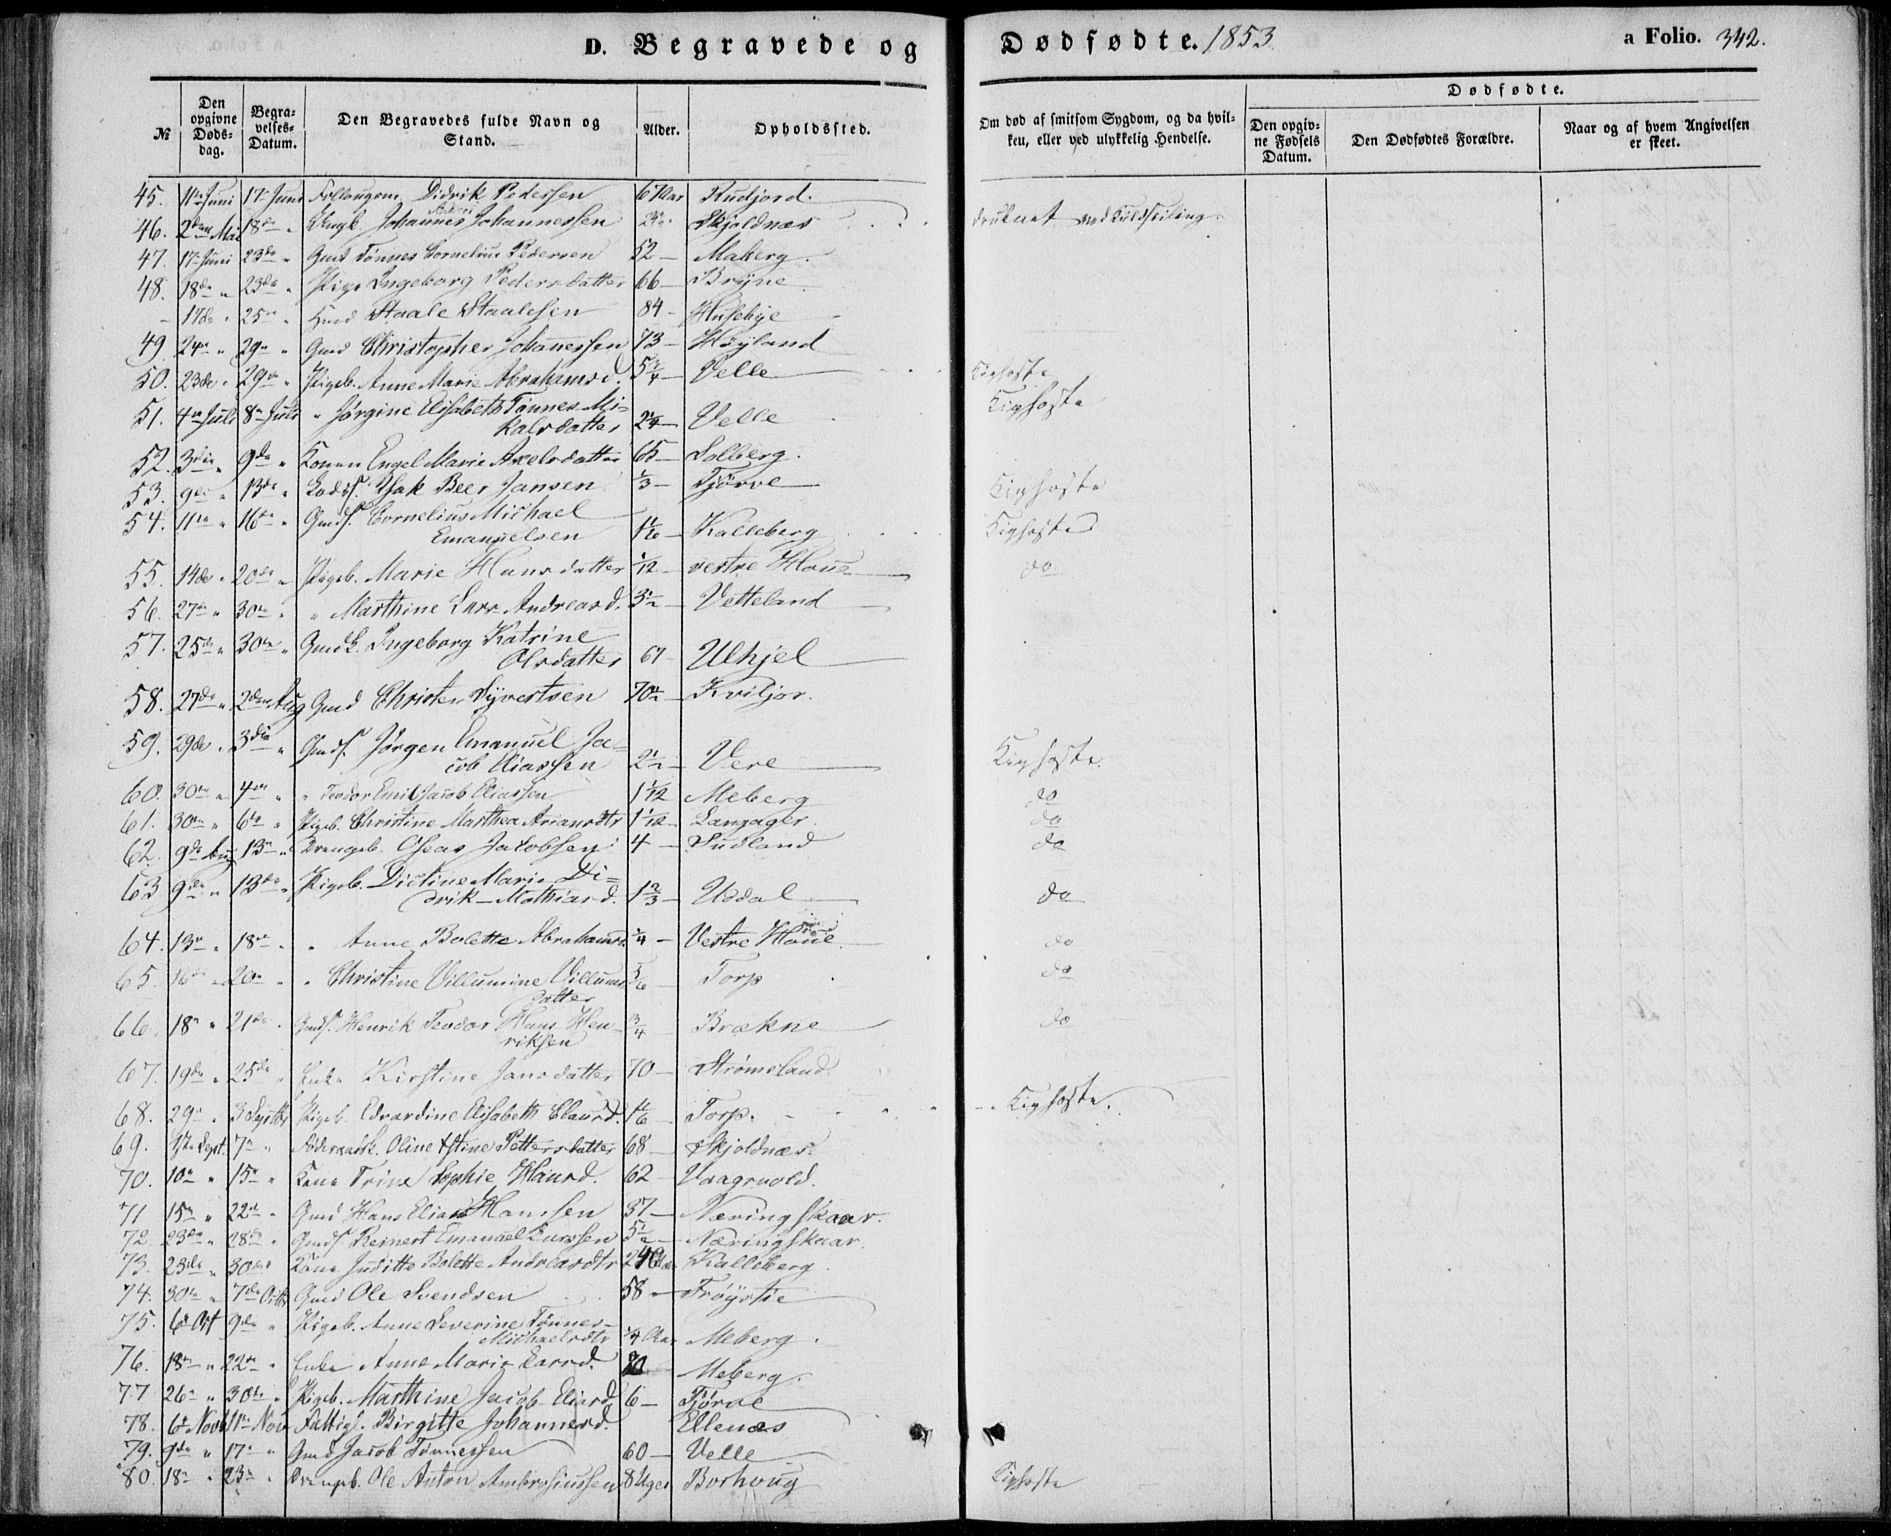 D. Begravede og Dødfødte. 1853 a Folio. 342.
№ Den opgivne Døds-dag. Begra-velses-Datum. Den Begravedes fulde Navn og Stand. Alder. Opholdssted. Om død af smitsom Sygdom, og da hvil-ken, eller ved ulykkelig Hendelse. Dødfødte.
Den opgiv-ne Fødsels Datum. Den Dødfødtes Forældre. Naar og af hvem Angivelsen er skeet.
45. 11te Juni 17 Juni Didrik Pedersen 67 Aar Rudjord.
46. 2den Mai 18de " Ungk. Johannes Johannessen Skjoldnæs druknet ved Kuldseiling.
47. 17 Juni 23de " Gmd Tønnes Cornelius Pedersen 52 — Maberg.
48. 18de " 23de " Pige Ingeborg Pedersdatter 66 — Bryne
17de " 25de " Hmd Staale Staalesen 84 — Husebye
49 24de " 29de " Gmd Christopher Johanessen 73 — Høyland
50. 23de " 29de " Pigeb. Anne Marie Abrahamsd. 5 3/4 — Velle Kighoste
51. 4de Juli 8de Juli " Jørgine Elisabeth Tønnes Mi-
kalsdatter 2 1/4 — Velle Kighoste
52. 3die " 9de " Konen Engel Marie Axelsdatter 65 — Solberg.
53. 9de " 13de " Isak Beer Jansen 1/3 — Tjørve Kighoste
54. 11te " 16de " Gmds. Cornelius Michael
Emanuelsen 1 1/6 — Kalleberg Kighoste
55. 14de " 20de " Pigeb. Marie Hansdatter 1/12 — vestre Houe do
56. 27de " 30te " " Marthine Lars Andreasd. 3 1/2 — Vetteland
57. 25de " 30te " Gmdk. Ingeborg Katrine
Olsdatter 67 — Ulhjel
58. 27de " 2den Aug Gmd Christen Syvertsen 70 1/2 — Kviljor.
59. 29de " 3die " Gmds. Jørgen Emanuel Ja-
cob Eliassen 2 1/2 — Vere Kighoste.
60. 30te " 4de " " Teodor Emil Jacob Eliassen 1 1/12 Meberg do
61. 30te " 6te " Pigeb. Christine Marthea Ariansdtr 1 1/12 — Langager. do
62. 9de Aug 13de " Drengeb. Oseas Jacobsen 4 — Sudland do
63 9de " 13de " Pigeb. Dictine Marie Di-
drik-Mathiasd. 1 2/3 — Usdal do
64. 13de " 18de " " Anne Bolette Abrahamsd. 1/4 — Vestre Houe do
65. 16de " 20de " " Christine Villumine Villums
datter 5/6 — Torp do
66. 18de " 21de " Gmds. Henrik Teodor Hans Hen-
riksen 3/4 — Brækne do
67. 19de " 25de " Enke Kirstine Jansdatter 70 — Strømsland.
68. 29de " 3 Septbr Pigeb. Edvardine Elisabeth Clausd. 1/6 — Torp. Kighoste.
69. 1ste Sept. 7de " Oline Pettersdatter 68 — Skjoldnæs.
70. 10de " 15de " Kone Trine Sophie Hansd. 62 — Vaagevold.
71 15de " 22de " Gmd Hans Elias Hansen 37 — Næringskaar.
72. 23de " 28de " Gmds. Reinert Emanuel Larssen 5 1/2 — Næringskaar.
73. 23de " 30te " Kone Juditte Bolette Andreasdtr 24 Aar Kalleberg.
74. 30te " 7de Octbr Gmd Ole Svendsen 58 — Frøystie
75. 6te Oct 9de " Pigeb. Anne Severine Tønnes-
Michaelsdtr 1/4 Aar Meberg.
76. 18de " 22de " Enke Anne Marie Larsd. 80 — Meberg.
77 26de " 30te " Pigeb. Marthine Jacob Eliasd 6 — Tjørve
78. 6te Novb. 11te Nov Fattigl. Birgitte Johannesd. Ellenæs
79. 9de " 17de " Gmd Jacob Tønnessen 60 — Velle
80. 18de " 23de " Drengeb. Ole Anton Ambrosiussen 8 Uger Borhoug Kighoste